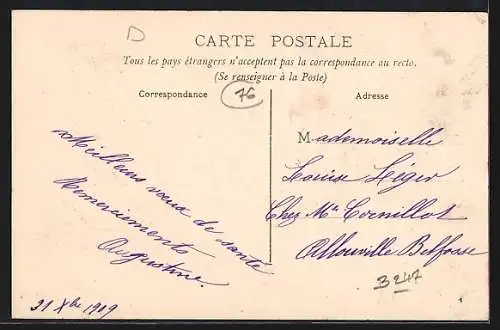 D
CARTE POSTALE
Tous les pays étrangers n'acceptent pas la correspondance au recto.
(Se renseigner à la Poste)
Correspondance
76
Adresse
Meilleurs voeux de santé
Remerciements
Augustine.
31 Xbre 1909
Mademoiselle
Louise Léger
Chez Mr Cornillot
Allouville Bellfosse
B247